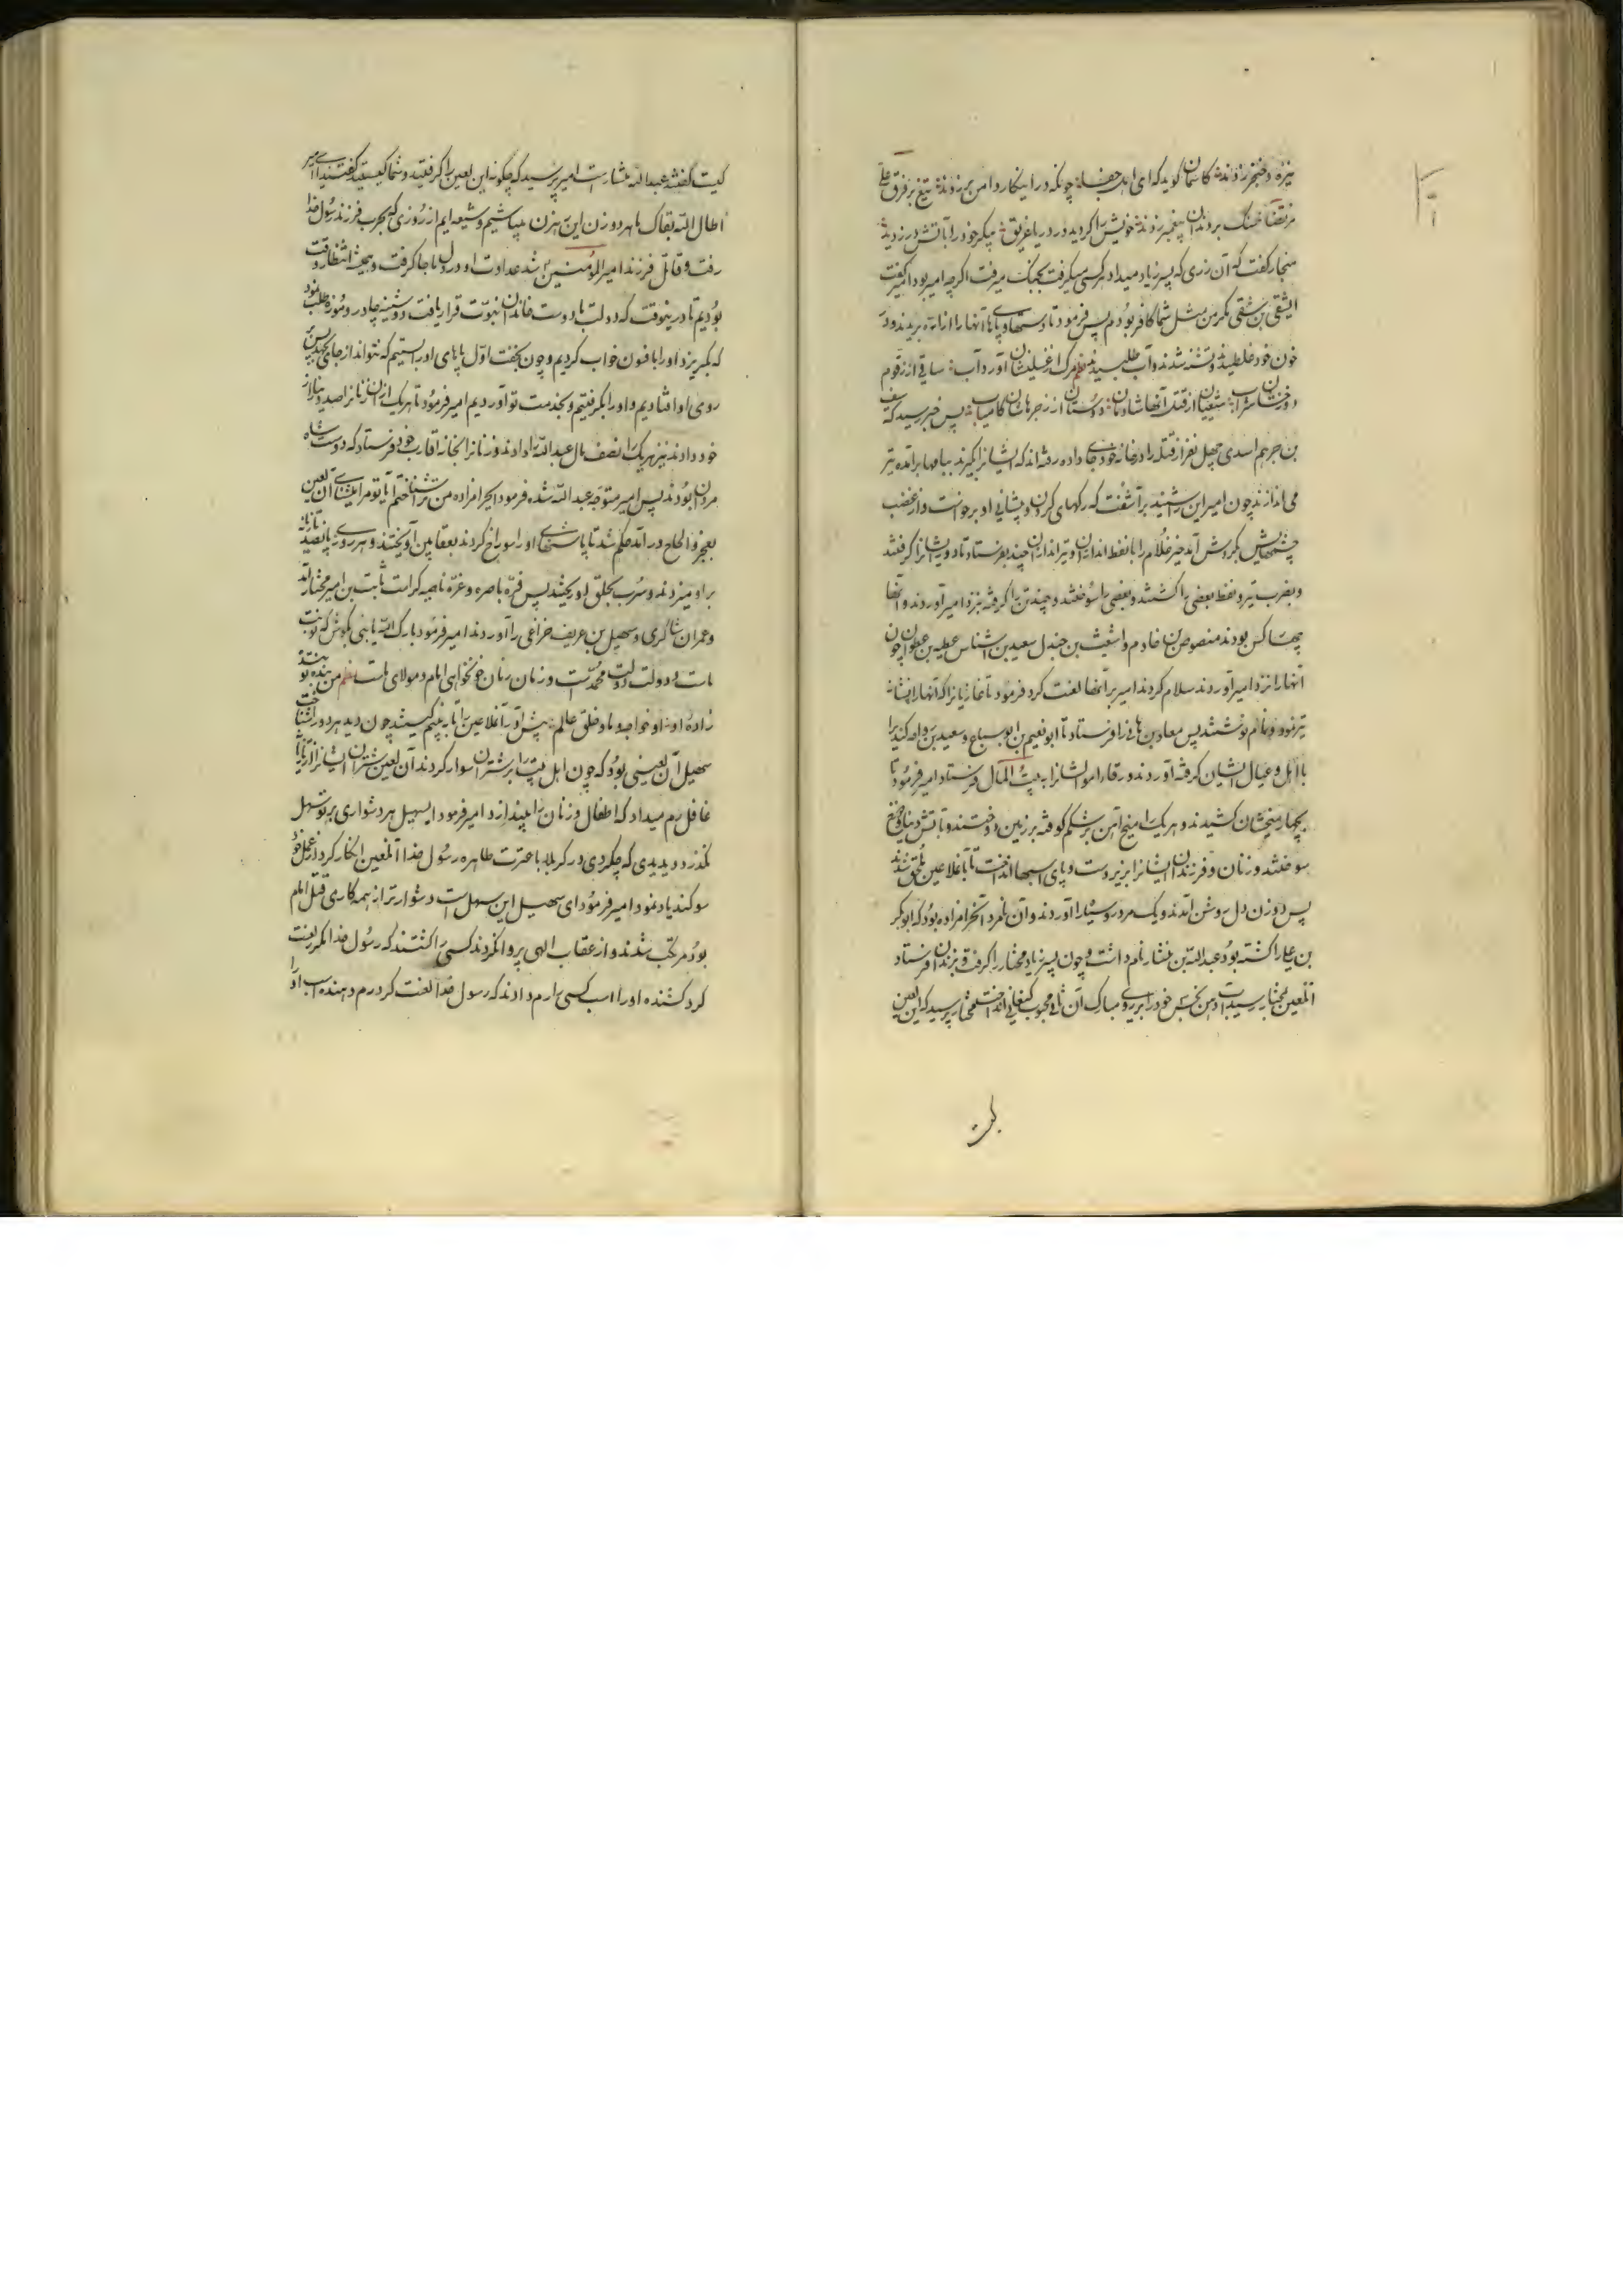 نیزه و خنجر زدند کاسمان کوید که ای اهل جفا چونکه در اینکار دامن بر زدند تیغ بر فرق علی
مرتضا خسک بر دندان پیغمبر زدند خویش را کردید در دریا غریق پیکر خود را باتش در زدید
منجار کفت که آن زری که پسر زیاد میداد هر کسی میکرفت بجنک میرفت اکرچه امیر بود امیر کفت
ایشقی بن شقی مکر من مثل شما کافر بودم پس فرمود تا دستها و پاها آنها را از تن بریدند و در
خون خود غلطیدند و تشنه شدند و آب طلبیدند نظم مرک از غسلین شان آورد آب ساقی از زقوم
دوزخشان شراب شیعیان از قتل آنها شادمان دوستان از زجرهاشان کامیاب پس خبر رسید که
بن جرهم اسدی چهل نفر از قتله را در خانه خود جای داده رفته اند که ایشانرا بکیرند ببامها برآمده تیر
می اندازند چون امیر این شنید برآشفت که رکهای کردن و پیشانی او برخواست و از غضب
چشمهایش بکردش آمد خیر غلام را با نفط اندازان و تیراندازان چند بفرستاد تا دور ایشانرا کرفتند
و بضرب تیر و نفط بعضی را کشتند و بعضی را سوختند و چند تن را کرفته بنزد امیر آوردند و آنها
چهار کس بودند منصور بن خادم و اشعث بن جندل سعید بن اشناس عطیه بن عطوان چون
آنهارا نزد امیر آوردند سلام کردند امیر بر آنها لعنت کرد فرمود تا غازیانرا که آنهارا نشانه
تیر نمودند و نام نوشتند پس معاد بن هانی را فرستاد تا ابو نعیم بن ابو سباح و سعید بن واصله کنید را
با اهل و عیال ایشان کرفته آوردند و رقاء اموالشانرا به بیت المال فرستاد امیر فرمود تا
بچهار میخشان کشیدند و هر یک را میخ آهن بر شکم کوفته بر زمین دوختند و باتش دنیا و دوزخ
سوختند و زنان و فرزندان ایشانرا بزیر دست و پای اسبها انداخت تا بآنملاعین ملحق شدند
پس دو زن دل روشن آمدند و یک مرد رو سیاه را آوردند و آن نامرد آنحرامزاده بود که ابوبکر
بن علی را کشته بود عبدالله بن بشار نام داشت و چون پسر زیاد مختار را کرفت و بزندان فرستاد
آنلعین بمختار رسید آب دهن نجس خود را بر روی مبارک آن ثانی محبوب کنعانی انداخت مختار پرسید که این لعین
کیست
کیست کفتند عبدالله بشار است امیر پرسید که چکونه این لعین را کرفتید و شما کیستید کفتند یا امیر
اطال الله بقاک ما هر دو زن این بیزن میباشیم و شیعه ایم از روزی که بحرب فرزند رسول خدا
رفت و قاتل فرزند امیر المؤمنین شد عداوت او در دل ما جا کرفت و همیشه انتظار وقت
بودیم تا در ینوقت که دولت با دوست خاندان نبوت قرار یافت دوشینه چادر و موزه طلب نمود
که بکریزد او را بافسون خواب کردیم و چون بخفت اول پاهای او را بستیم که نتواند از جای بجهد پس بر
روی او افتادیم و او را بکرفتیم و بخدمت تو آوردیم امیر فرمود تا هر یک از آن زنانرا صد دینار از
خود دادند نیز هر یک را نصف مال عبدالله را دادند و زنانرا بخانه اقارب خود فرستاد که دوست شاه
مردان بودند پس امیر متوجه عبدالله شده فرمود ایحرامزاده من ترا شناختم آیا تو مرا میشناسی آن لعین
بعجز و الحاح در آمد حکم شد تا پاشنهای او را سوراخ کردند بعقابین آویختند و هر روز پانصد تازیانه
بر او میزدند و سرب بحلق او ریختند پس قره باصره و غره ناصیه کرامت ثابت بن امیر مختار آمد
و عمران شاکری و سهیل بن عریف خزاعی را آوردند امیر فرمود بارک الله یا بنی بکوش که نوبت
ماست و دولت دولت محمد است و زمان زمان خونخواهی امام و مولای ماست نظم من بنده تو بنده
زاده او او خواجه ما و خلق عالم پیش آور آنملاعین را تا به بینیم کیستند چون دید هر دو را شناخت
سهیل آن لعینی بود که چون اهل بیت را بر شتران سوار کردند آن لعین شتران ایشانرا از تازیانه
غافل رم میداد که اطفال و زنان را بیندازد امیر فرمود ایسهیل هر دشواری بر تو سهل
بکذرد دیدی که چکردی در کربلا با عترت طاهره رسول خدا آنلعین انکار کرد از عمل خود
سوکند یاد نمود امیر فرمود ای سهیل این سهل است دشوارتر از همه کاری قتل امام
بود مرتکب شدند و از عقاب الهی پروا نکردند کسی را کشتند که رسول خدا مکر لعنت
کرد کشنده او را اسب کسی را رم دادند که رسول خدا لعنت کرد رم دهنده اسب او را